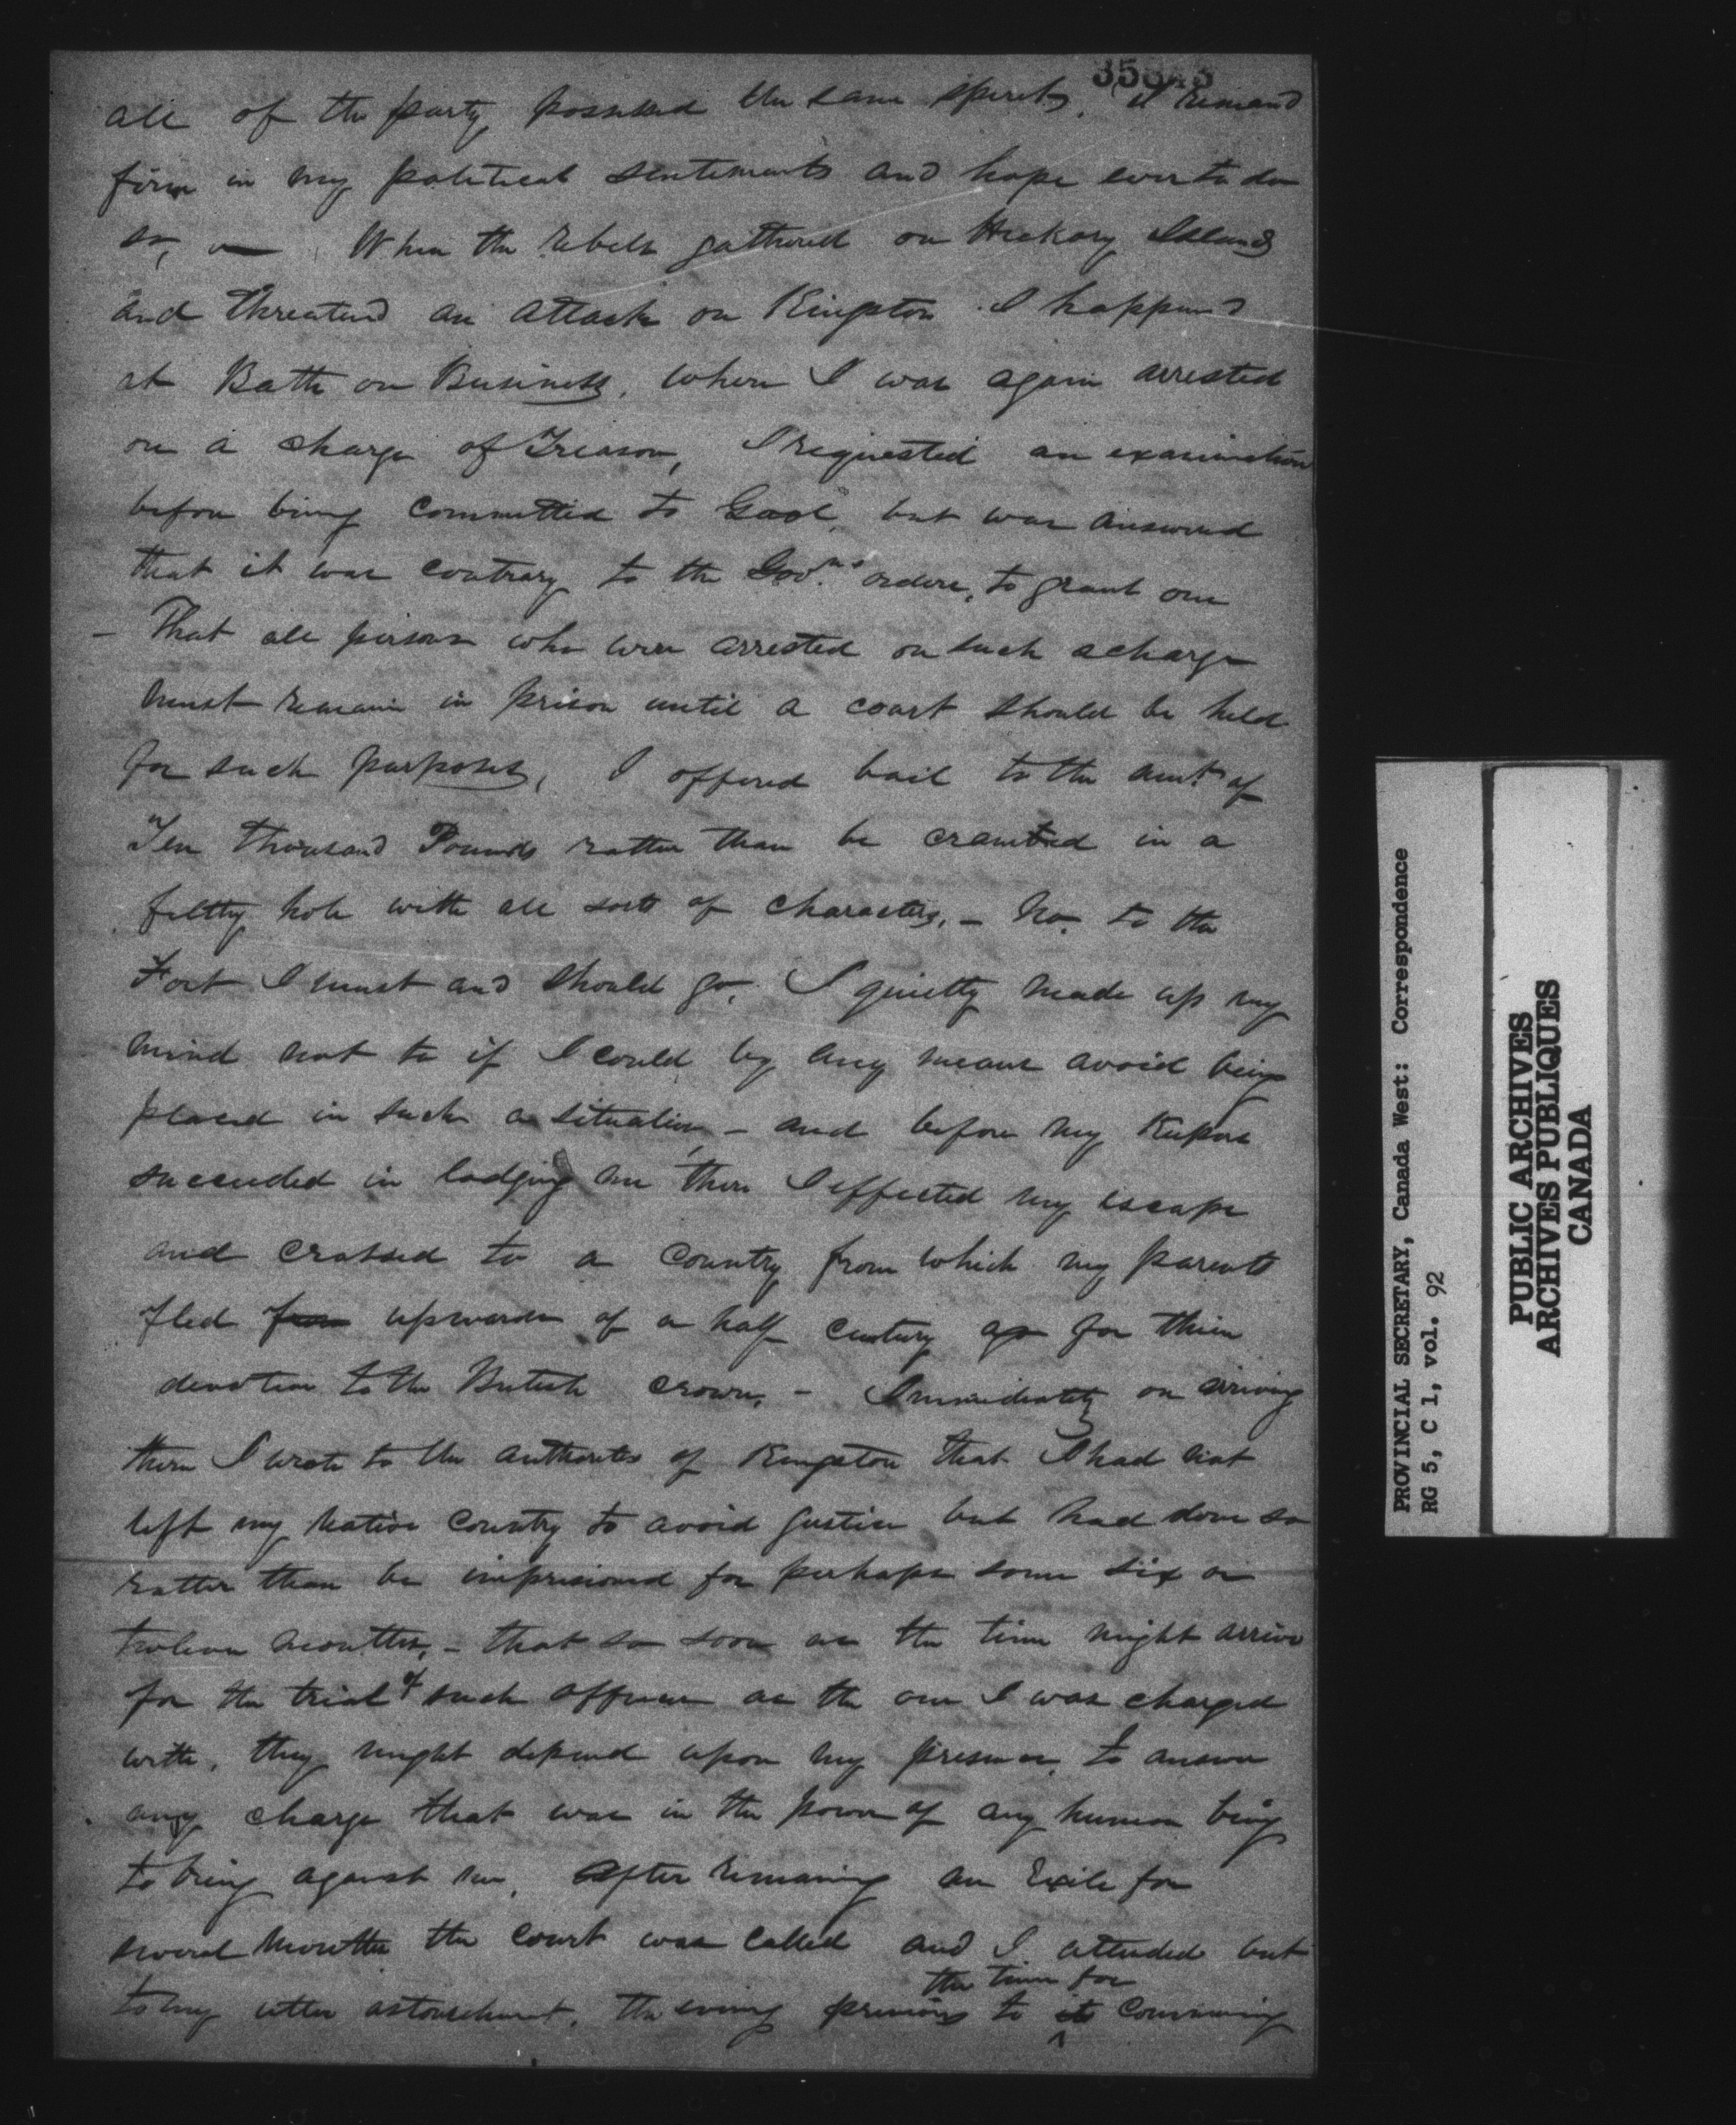 all of the party possessed the same spirit. I remained
firm in my political sentiments and hope ever to do
so, — When the rebels gathered on Hickory Island
and threatend an attack on Kingston I happened
at Bath on Business, when I was again arrested
on a charge of Treason, I requested an examination
before being committed to Gaol, but was answered
that it was contrary to the Govrs orders, to grant one
— That all persons who were arrested on such a charge
must remain in prison until a court should be held
for such purposes, I offered bail to the amt. of
Ten thousand Pounds rather than be in a
filthy hole with all sorts of characters, — No. to the
Fort I must and should go, I quietly made up my
mind not to if I could by any means avoid being
placed in such a situation — and before my Keepers
succeeded in lodging me there I effected my escape
and crossed to a country from which my parents
fled from upwards of a half century ago for their
devotion to the British crown, — Immediately on arriving
there I wrote to the authorities of Kingston that I had not
left my native country to avoid justice but had done so
rather than be imprisoned for perhaps some six or
twelve months, — that so soon as the time might arrive
for the trial of such offence as the one I was charged
with, they might depend upon my presence, to answer
any charge that was in the power of any human being
to bring against me, After remaining an Exile for
several months the court was called and I attended but
the time for
to my utter astonishment, the evening previous to its convening
PROVINCIAL SECRETARY, Canada West: Correspondence
RG 5, C 1, vol. 92
PUBLIC ARCHIVES
ARCHIVES PUBLIQUES
CANADA